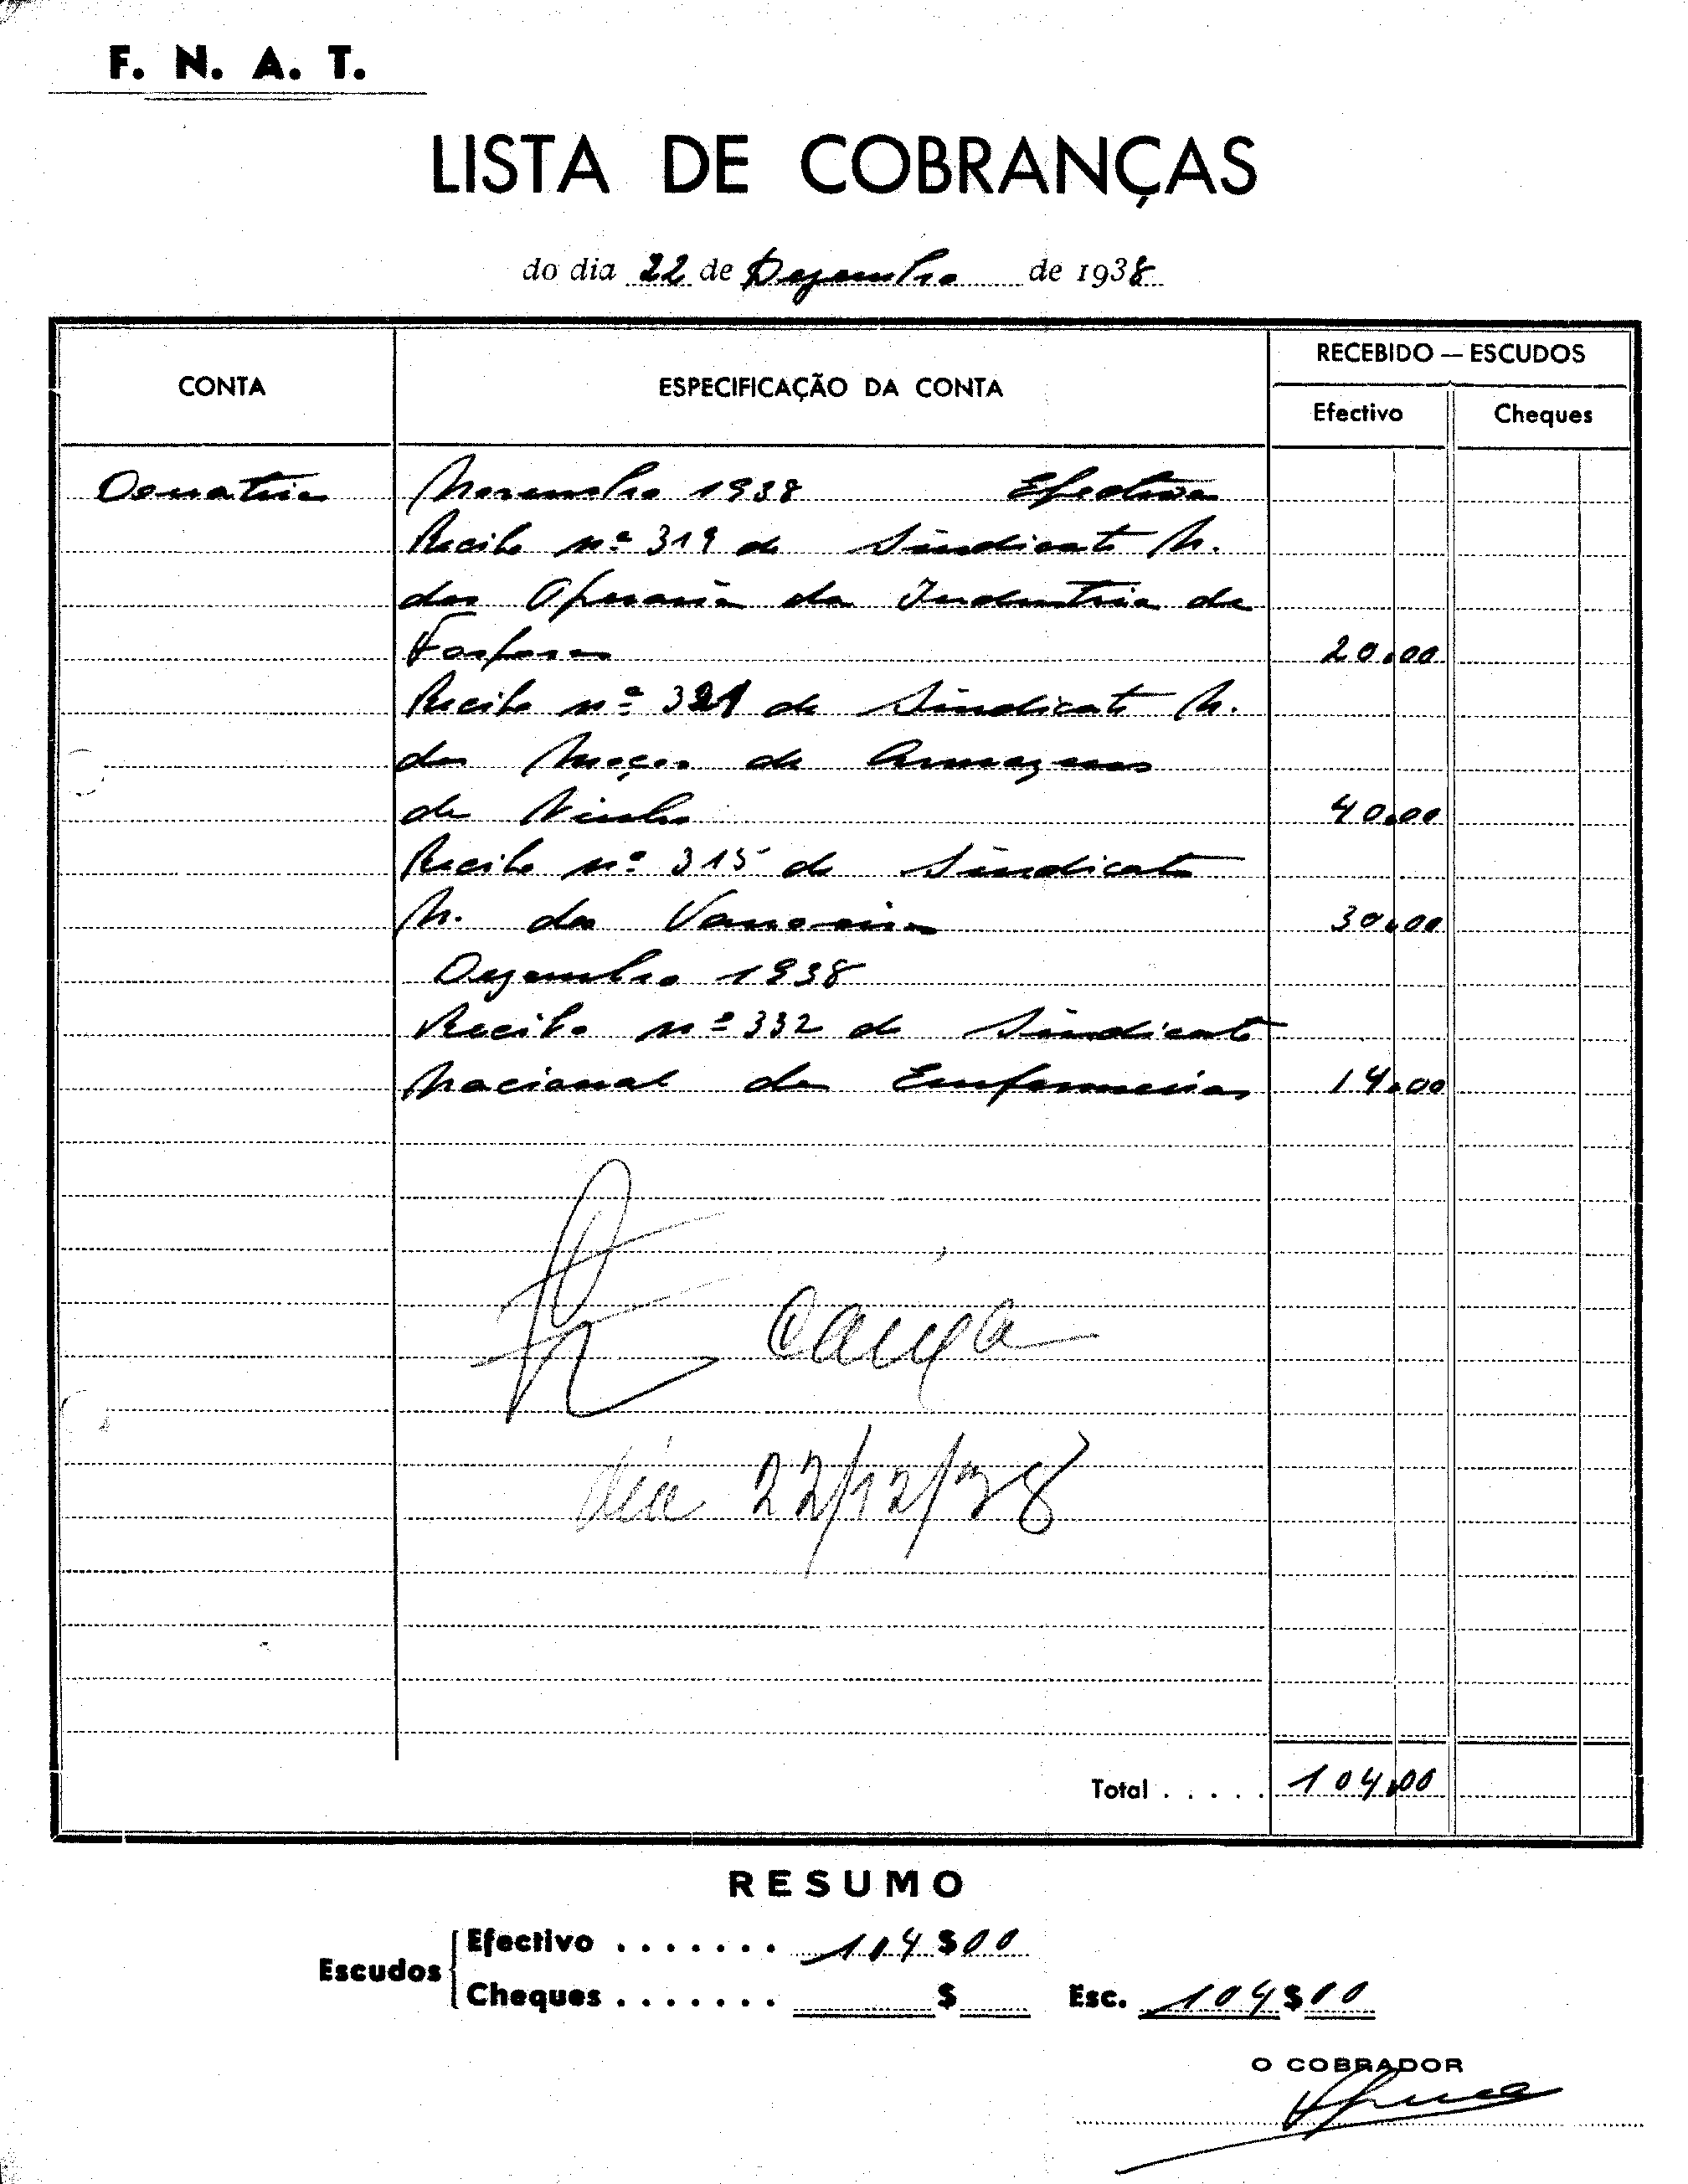 F. N. A. T.
LISTA DE COBRANÇAS
do dia 22 de Dezembro de 1938
CONTA
ESPECIFICAÇÃO DA CONTA
RECEBIDO — ESCUDOS
Efectivo
Cheques
Novembro 1938
Recibo nº 319 do Sindicato N.
dos Operarios da Industria de
Fosforos 20.00
Recibo nº 321 do Sindicato N.
dos Moços de Armazens
de Vinho 40.00
Recibo nº 315 do Sindicato
N. dos 30.00
Dezembro 1938
Recibo nº 332 do Sindicato
Nacional de Enfermeiros 14.00
Caixa
dia 22/12/38
Total . . . . . 104.00
RESUMO
Escudos
Efectivo . . . . . . . 104$00
Cheques . . . . . . . $ Esc. 104$00
O COBRADOR